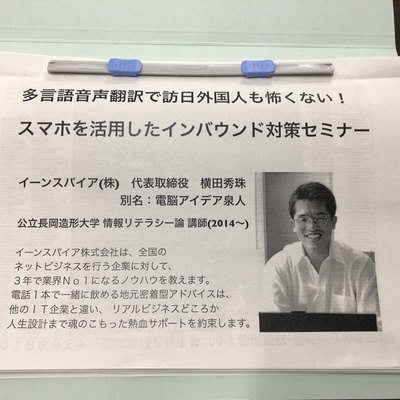 多言語音声翻訳で訪日外国人も怖くない！
スマホを活用したインバウンド対策セミナー
イーンスパイア(株)　代表取締役　横田秀珠
別名：電脳アイデア泉人
公立長岡造形大学 情報リテラシー論 講師(2014〜)
イーンスパイア株式会社は、全国の
ネットビジネスを行う企業に対して、
３年で業界Ｎｏ１になるノウハウを教えます。
電話１本で一緒に飲める地元密着型アドバイスは、
他のＩＴ企業と違い、リアルビジネスどころか
人生設計まで魂のこもった熱血サポートを約束します。